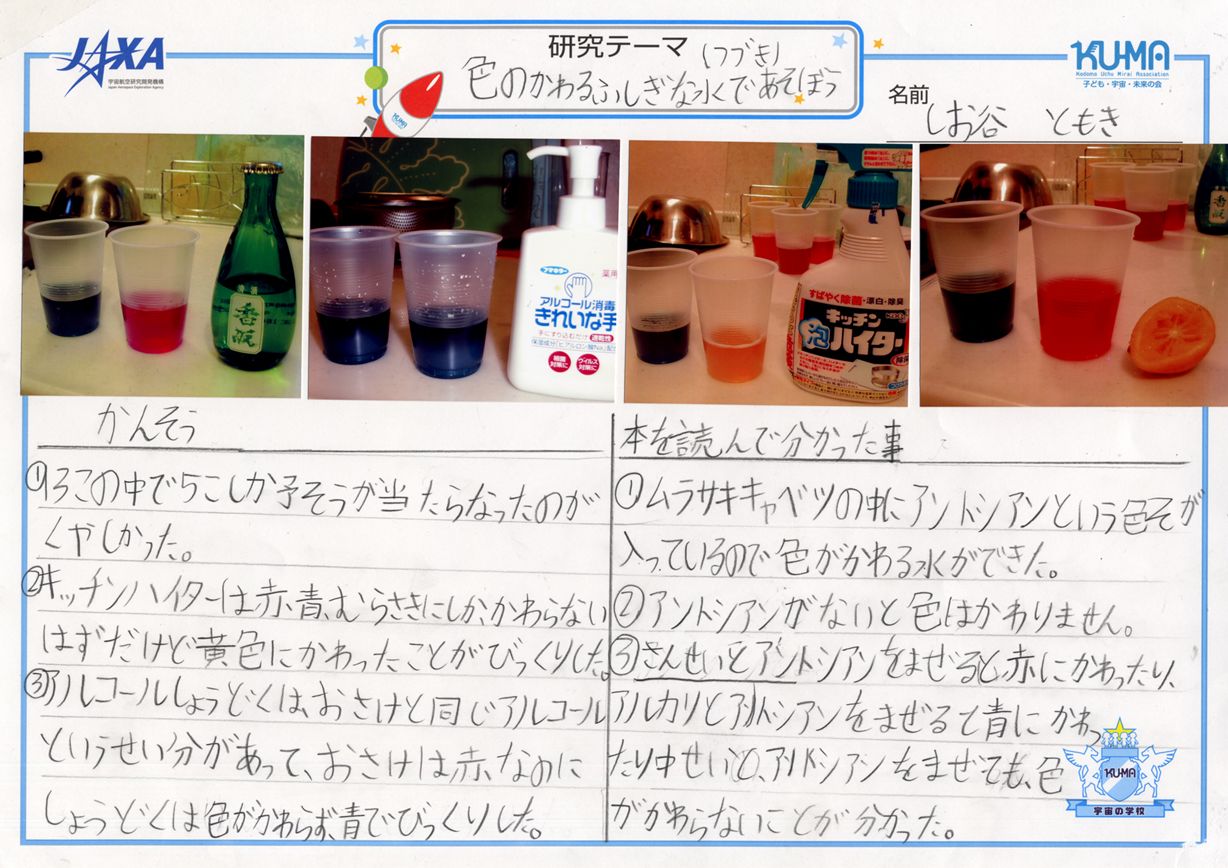 JAXA
宇宙航空研究開発機構
Japan Aerospace Exploration Agency
研究テーマ (つづき)
色のかわるふしぎな水であそぼう
KUMA
Kodomo Uchu Mirai Association
子ども・宇宙・未来の会
KUMA
名前
しお谷 ともき
清酒
薬用
アルコール消毒
きれいな手
手にすり込むだけ 速乾性
保湿成分「ヒアルロン酸Na」配合
細菌対策に ウイルス対策に
すばやく除菌・漂白・除臭
キッチン
泡ハイター
かんそう
①9この中で5こしか予そうが当たらなったのが
くやしかった。
②キッチンハイターは赤、青、むらさきにしか、かわらない
はずだけど黄色にかわったことがびっくりした。
③アルコールしょうどくは、おさけと同じアルコール
というせい分があって、おさけは赤、なのに
しょうどくは色がかわらず、青でびっくりした。
本を読んで分かった事
①ムラサキキャベツの中にアントシアンという色そが
入っているので色がかわる水ができた。
②アントシアンがないと色はかわりません。
③さんせいとアントシアンをまぜると、赤にかわったり、
アルカリとアントシアンをまぜると青にかわっ
たり中せいと、アントシアンをまぜても、色
がかわらないことが分かった。
KUMA
宇宙の学校